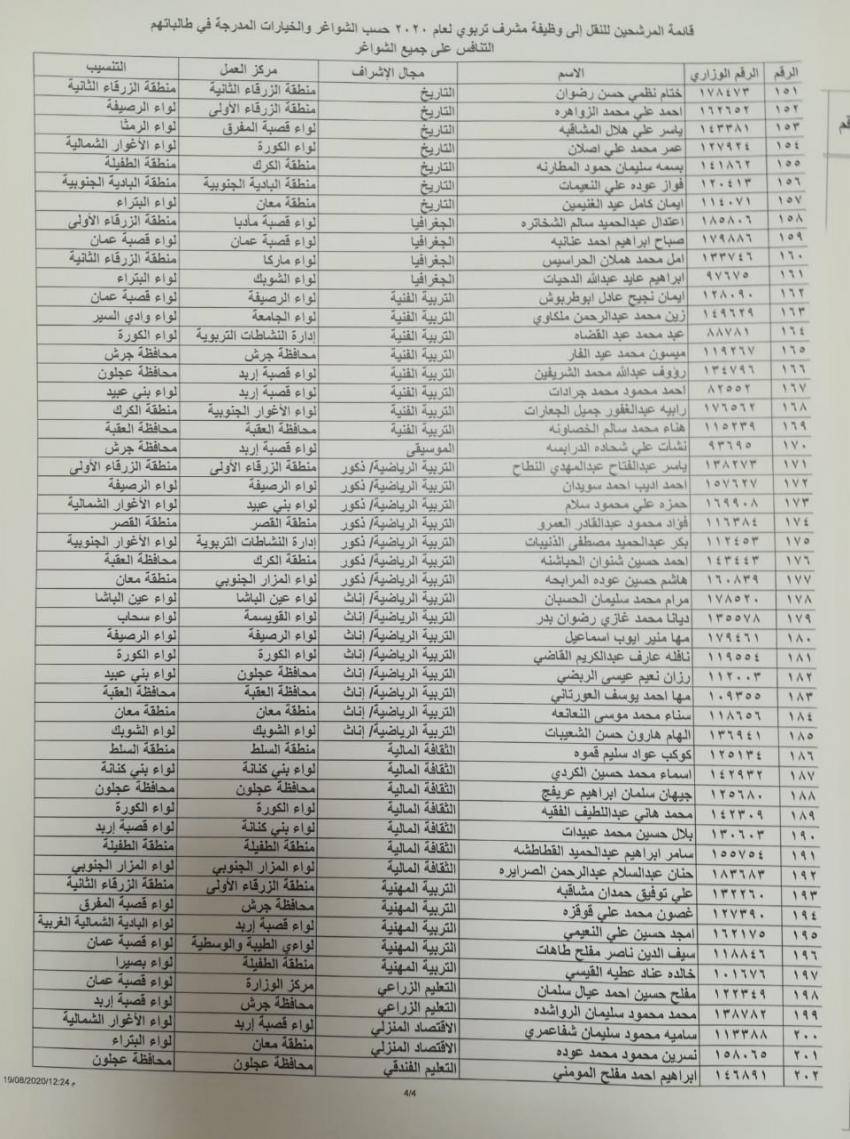 قائمة المرشحين للنقل إلى وظيفة مشرف تربوي لعام ٢٠٢٠ حسب الشواغر والخيارات المدرجة في طالباتهم
التنافس على جميع الشواغر
الرقم الرقم الوزاري الاسم مجال الإشراف مركز العمل التنسيب
١٥١ ١٧٨٤٧٣ ختام نظمي حسن رضوان التاريخ منطقة الزرقاء الثانية منطقة الزرقاء الثانية
١٥٢ ١٦٢٦٥٢ احمد علي محمد الزواهره التاريخ منطقة الزرقاء الأولى لواء الرصيفة
١٥٣ ١٤٣٣٨١ ياسر علي هلال المشاقبه التاريخ لواء قصبة المفرق لواء الرمثا
١٥٤ ١٢٧٩٢٤ عمر محمد علي اصلان التاريخ لواء الكورة لواء الأغوار الشمالية
١٥٥ ١٤١٨٦٢ بسمه سليمان حمود المطارنه التاريخ منطقة الكرك منطقة الطفيلة
١٥٦ ١٢٠٤١٣ فواز عوده علي النعيمات التاريخ منطقة البادية الجنوبية منطقة البادية الجنوبية
١٥٧ ١١٤٠٧١ ايمان كامل عيد الغنيمين التاريخ منطقة معان لواء البتراء
١٥٨ ١٨٥٨٠٦ اعتدال عبدالحميد سالم الشخاتره الجغرافيا لواء قصبة مادبا منطقة الزرقاء الأولى
١٥٩ ١٧٩٨٨٦ صباح ابراهيم احمد عنانبه الجغرافيا لواء قصبة عمان لواء قصبة عمان
١٦٠ ١٣٣٧٤٦ امل محمد هملان الحراسيس الجغرافيا لواء ماركا منطقة الزرقاء الثانية
١٦١ ٩٧٦٧٥ ابراهيم عايد عبدالله الدحيات الجغرافيا لواء الشوبك لواء البتراء
١٦٢ ١٢٨٠٩٠ ايمان نجيح عادل ابوطربوش التربية الفنية لواء الرصيفة لواء قصبة عمان
١٦٣ ١٤٩٦٢٩ زين محمد عبدالرحمن ملكاوي التربية الفنية لواء الجامعة لواء وادي السير
١٦٤ ٨٨٧٨١ عبد محمد عبد القضاه التربية الفنية إدارة النشاطات التربوية لواء الكورة
١٦٥ ١١٩٢٦٧ ميسون محمد عيد الفار التربية الفنية محافظة جرش محافظة جرش
١٦٦ ١٣٤٧٩٦ رؤوف عبدالله محمد الشريفين التربية الفنية لواء قصبة إربد محافظة عجلون
١٦٧ ٨٢٥٥٢ احمد محمود محمد جرادات التربية الفنية لواء قصبة إربد لواء بني عبيد
١٦٨ ١٧٦٥٦٢ رابيه عبدالغفور جميل الجعارات التربية الفنية لواء الأغوار الجنوبية منطقة الكرك
١٦٩ ١١٥٢٣٩ هناء محمد سالم الخصاونه التربية الفنية محافظة العقبة محافظة العقبة
١٧٠ ٩٣٦٩٥ نشأت علي شحاده الدرابسه الموسيقى لواء قصبة إربد محافظة جرش
١٧١ ١٣٨٢٧٣ ياسر عبدالفتاح عبدالمهدي النطاح التربية الرياضية/ ذكور منطقة الزرقاء الأولى منطقة الزرقاء الأولى
١٧٢ ١٥٧٦٢٧ احمد اديب احمد سويدان التربية الرياضية/ ذكور لواء الرصيفة لواء الرصيفة
١٧٣ ١٦٩٩٠٨ حمزه علي محمود سلام التربية الرياضية/ ذكور لواء بني عبيد لواء الأغوار الشمالية
١٧٤ ١١٦٣٨٤ فؤاد محمود عبدالقادر العمرو التربية الرياضية/ ذكور منطقة القصر منطقة القصر
١٧٥ ١١٢٤٥٣ بكر عبدالحميد مصطفى الذنيبات التربية الرياضية/ ذكور إدارة النشاطات التربوية لواء الأغوار الجنوبية
١٧٦ ١٤٣٤٤٣ احمد حسين شنوان الحباشنه التربية الرياضية/ ذكور منطقة الكرك محافظة العقبة
١٧٧ ١٦٠٨٣٩ هاشم حسين عوده المرابحه التربية الرياضية/ ذكور لواء المزار الجنوبي منطقة معان
١٧٨ ١٧٨٥٢٠ مرام محمد سليمان الحسبان التربية الرياضية/ إناث لواء عين الباشا لواء عين الباشا
١٧٩ ١٣٥٥٧٨ ديانا محمد غازي رضوان بدر التربية الرياضية/ إناث لواء القويسمة لواء سحاب
١٨٠ ١٧٩٤٦١ مها منير ايوب اسماعيل التربية الرياضية/ إناث لواء الرصيفة لواء الرصيفة
١٨١ ١١٩٥٥٤ نافله عارف عبدالكريم القاضي التربية الرياضية/ إناث لواء الكورة لواء الكورة
١٨٢ ١١٢٠٠٣ رزان نعيم عيسى الربضي التربية الرياضية/ إناث محافظة عجلون لواء بني عبيد
١٨٣ ١٠٩٣٥٥ مها احمد يوسف العورتاني التربية الرياضية/ إناث محافظة العقبة محافظة العقبة
١٨٤ ١١٨٦٥٦ سناء محمد موسى النعانعه التربية الرياضية/ إناث منطقة معان منطقة معان
١٨٥ ١٣٦٩٤١ الهام هارون حسن الشعيبات التربية الرياضية/ إناث لواء الشوبك لواء الشوبك
١٨٦ ١٢٥١٣٤ كوكب عواد سليم قموه الثقافة المالية منطقة السلط منطقة السلط
١٨٧ ١٤٢٩٣٢ اسماء محمد حسين الكردي الثقافة المالية لواء بني كنانة لواء بني كنانة
١٨٨ ١٢٥٦٨٠ جيهان سلمان ابراهيم عريفج الثقافة المالية محافظة عجلون محافظة عجلون
١٨٩ ١٤٢٣٠٩ محمد هاني عبداللطيف الفقيه الثقافة المالية لواء الكورة لواء الكورة
١٩٠ ١٣٠٦٠٣ بلال حسين محمد عبيدات الثقافة المالية لواء بني كنانة لواء قصبة إربد
١٩١ ١٥٥٧٥٤ سامر ابراهيم عبدالحميد القطاطشه الثقافة المالية منطقة الطفيلة منطقة الطفيلة
١٩٢ ١٨٣٦٨٣ حنان عبدالسلام عبدالرحمن الصرايره الثقافة المالية لواء المزار الجنوبي لواء المزار الجنوبي
١٩٣ ١٣٢٢٦٠ علي توفيق حمدان مشاقبه التربية المهنية منطقة الزرقاء الأولى منطقة الزرقاء الثانية
١٩٤ ١٢٧٣٩٠ غصون محمد علي قوقزه التربية المهنية محافظة جرش لواء قصبة المفرق
١٩٥ ١٦٢١٧٥ امجد حسين علي النعيمي التربية المهنية لواء قصبة إربد لواء البادية الشمالية الغربية
١٩٦ ١١٨٨٤٦ سيف الدين ناصر مفلح طاهات التربية المهنية لواءي الطيبة والوسطية لواء قصبة عمان
١٩٧ ١٠١٦٧٦ خالده عناد عطيه القيسي التربية المهنية منطقة الطفيلة لواء بصيرا
١٩٨ ١٢٢٣٤٩ مفلح حسين احمد عيال سلمان التعليم الزراعي مركز الوزارة لواء قصبة عمان
١٩٩ ١٣٨٧٨٢ محمد محمود سليمان الرواشده التعليم الزراعي محافظة جرش لواء قصبة إربد
٢٠٠ ١١٣٣٨٨ ساميه محمود سليمان شفاعمري الاقتصاد المنزلي لواء قصبة إربد لواء الأغوار الشمالية
٢٠١ ١٥٨٠٦٥ نسرين محمود محمد عوده الاقتصاد المنزلي منطقة معان لواء البتراء
٢٠٢ ١٤٦٨٩١ ابراهيم احمد مفلح المومني التعليم الفندقي محافظة عجلون محافظة عجلون
19/08/2020/12:24 م
4/4